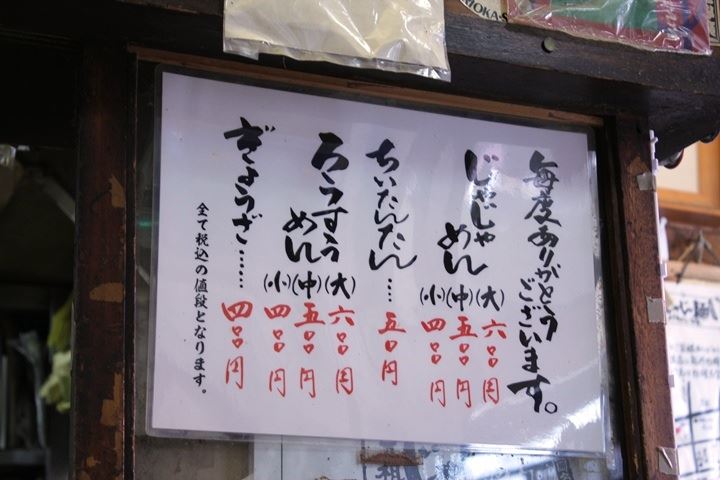 毎度ありがとう
ございます。
じゃじゃ
めん
(大) 六〇〇円
(中) 五〇〇円
(小) 四〇〇円
ちいたんたん… 五〇円
ろうすう
めん
(大) 六〇〇円
(中) 五〇〇円
(小) 四〇〇円
ぎょうざ…… 四〇〇円
全て税込の値段となります。